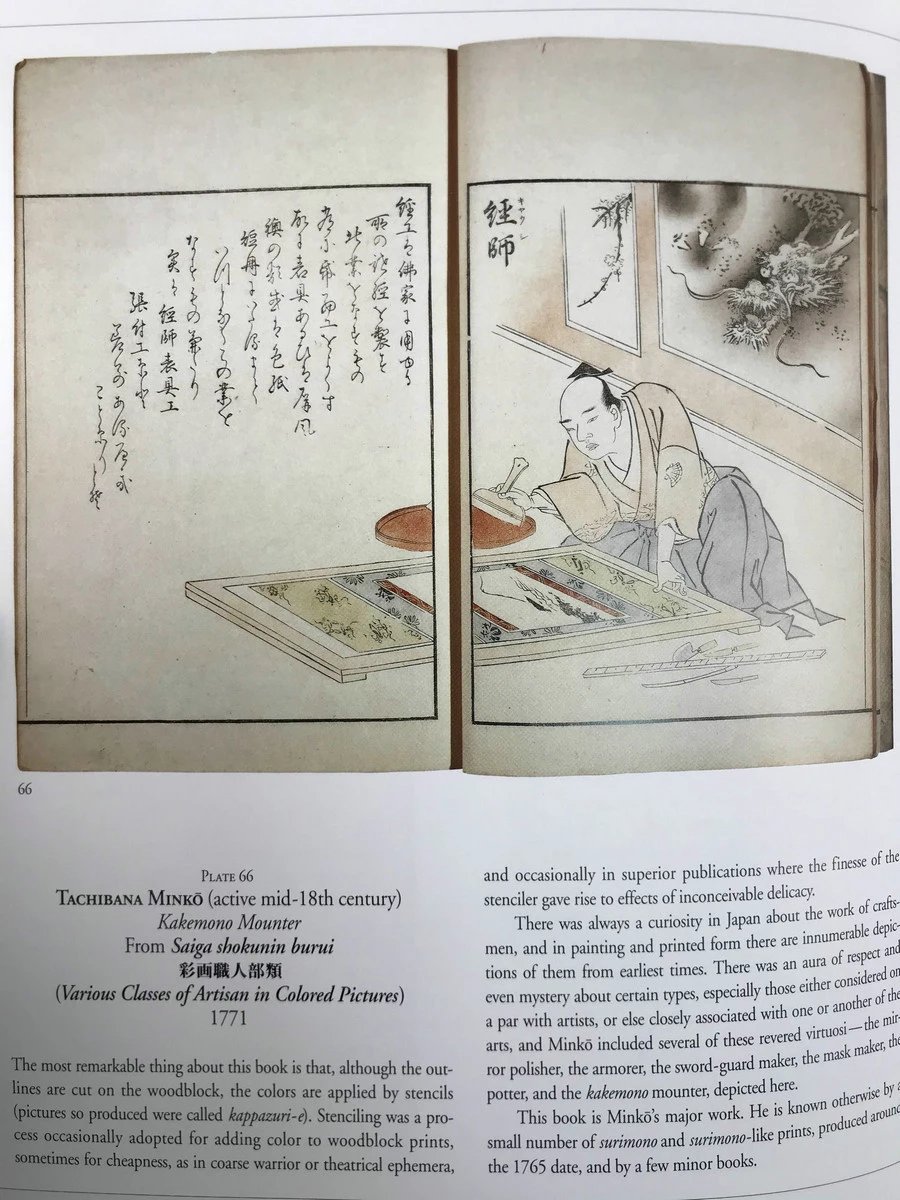 經師
キヤウシ
經工は佛家に用ゆる
所の諸經を製す
此業をなすもの
表具あるひは屏風
色紙
の業を
經師表具工
張付工
66
PLATE 66
TACHIBANA MINKŌ (active mid-18th century)
Kakemono Mounter
From Saiga shokunin burui
彩画職人部類
(Various Classes of Artisan in Colored Pictures)
1771
The most remarkable thing about this book is that, although the out-
lines are cut on the woodblock, the colors are applied by stencils
(pictures so produced were called kappazuri-e). Stenciling was a pro-
cess occasionally adopted for adding color to woodblock prints,
sometimes for cheapness, as in coarse warrior or theatrical ephemera,
and occasionally in superior publications where the finesse of the
stenciler gave rise to effects of inconceivable delicacy.
There was always a curiosity in Japan about the work of crafts-
men, and in painting and printed form there are innumerable depic-
tions of them from earliest times. There was an aura of respect and
even mystery about certain types, especially those either considered on
a par with artists, or else closely associated with one or another of the
arts, and Minkō included several of these revered virtuosi—the mir-
ror polisher, the armorer, the sword-guard maker, the mask maker, the
potter, and the kakemono mounter, depicted here.
This book is Minkō's major work. He is known otherwise by a
small number of surimono and surimono-like prints, produced around
the 1765 date, and by a few minor books.